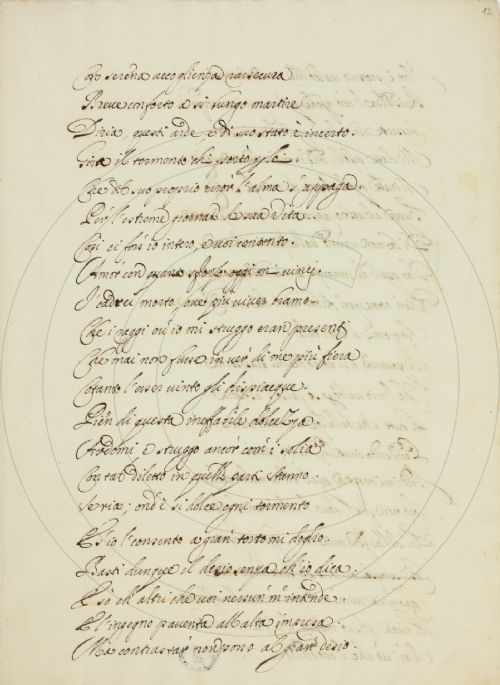 12
Con serena accoglienza rassecura
Breve conforto a sì lungo martire
Diria, questi arde e di suo stato è incerto.
Gira il tormento ch'io porto
Che del suo proprio error l'alma s'appaga.
Per l'estreme giornate de sua vita
Così ci fuss'io intero, e voi contento.
Amor con quanto sforzo oggi mi vinci
I cadrei morto, ove più viver bramo.
Che i raggi ov'io mi struggo eran presenti
Che mai non fusse in ver di me più fiera
Cotanto l'esser vinto gli dispiacque.
Pien di questa ineffabile dolcezza
Ardomi, e struggo ancor com'i solia
Con tal diletto in quelle parti stanno.
Seria; ond'è sì dolce ogni tormento
Et io l'consento a gran torto mi doglio.
Basti dunque il desio senza ch'io dica.
E so ch'altri che voi nessun m'intende
E l'ingegno paventa all'alta impresa
Ma contrastar non posso al gran desio.